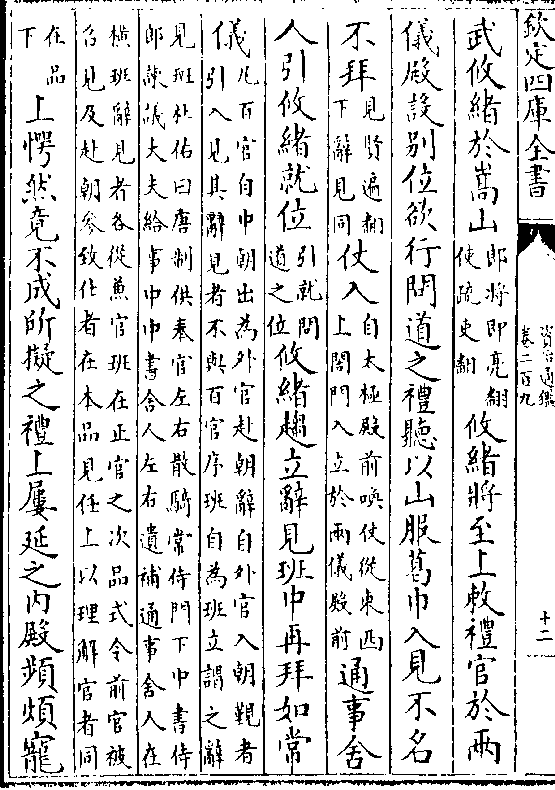 欽定四庫全書
資治通鑑
卷二百九
十二
武攸緒於嵩山郎將即亮翻使疏吏翻攸緒將至上敕禮官於兩
儀殿設别位欲行問道之禮聽以山服葛巾入見不名
不拜見賢遍翻下辭見同仗入自太極殿前喚仗從東西上閤門入立於兩儀殿前通事舍
人引攸緒就位引就問道之位攸緒趨立辭見班中再拜如常
儀凡百官自中朝出為外官赴朝辭自外官入朝覲者
引入見其辭見者不與百官序班自為班立謂之辭
見班杜佑曰唐制供奉官左右散騎常侍門下中書侍
郎諫議大夫給事中中書舍人左右遺補通事舍人在
横班辭見者各從兼官班在正官之次品式令前官被
召見及赴朝參致仕者在本品見任上以理解官者同
在品下上愕然竟不成所擬之禮上屢延之内殿頻煩寵